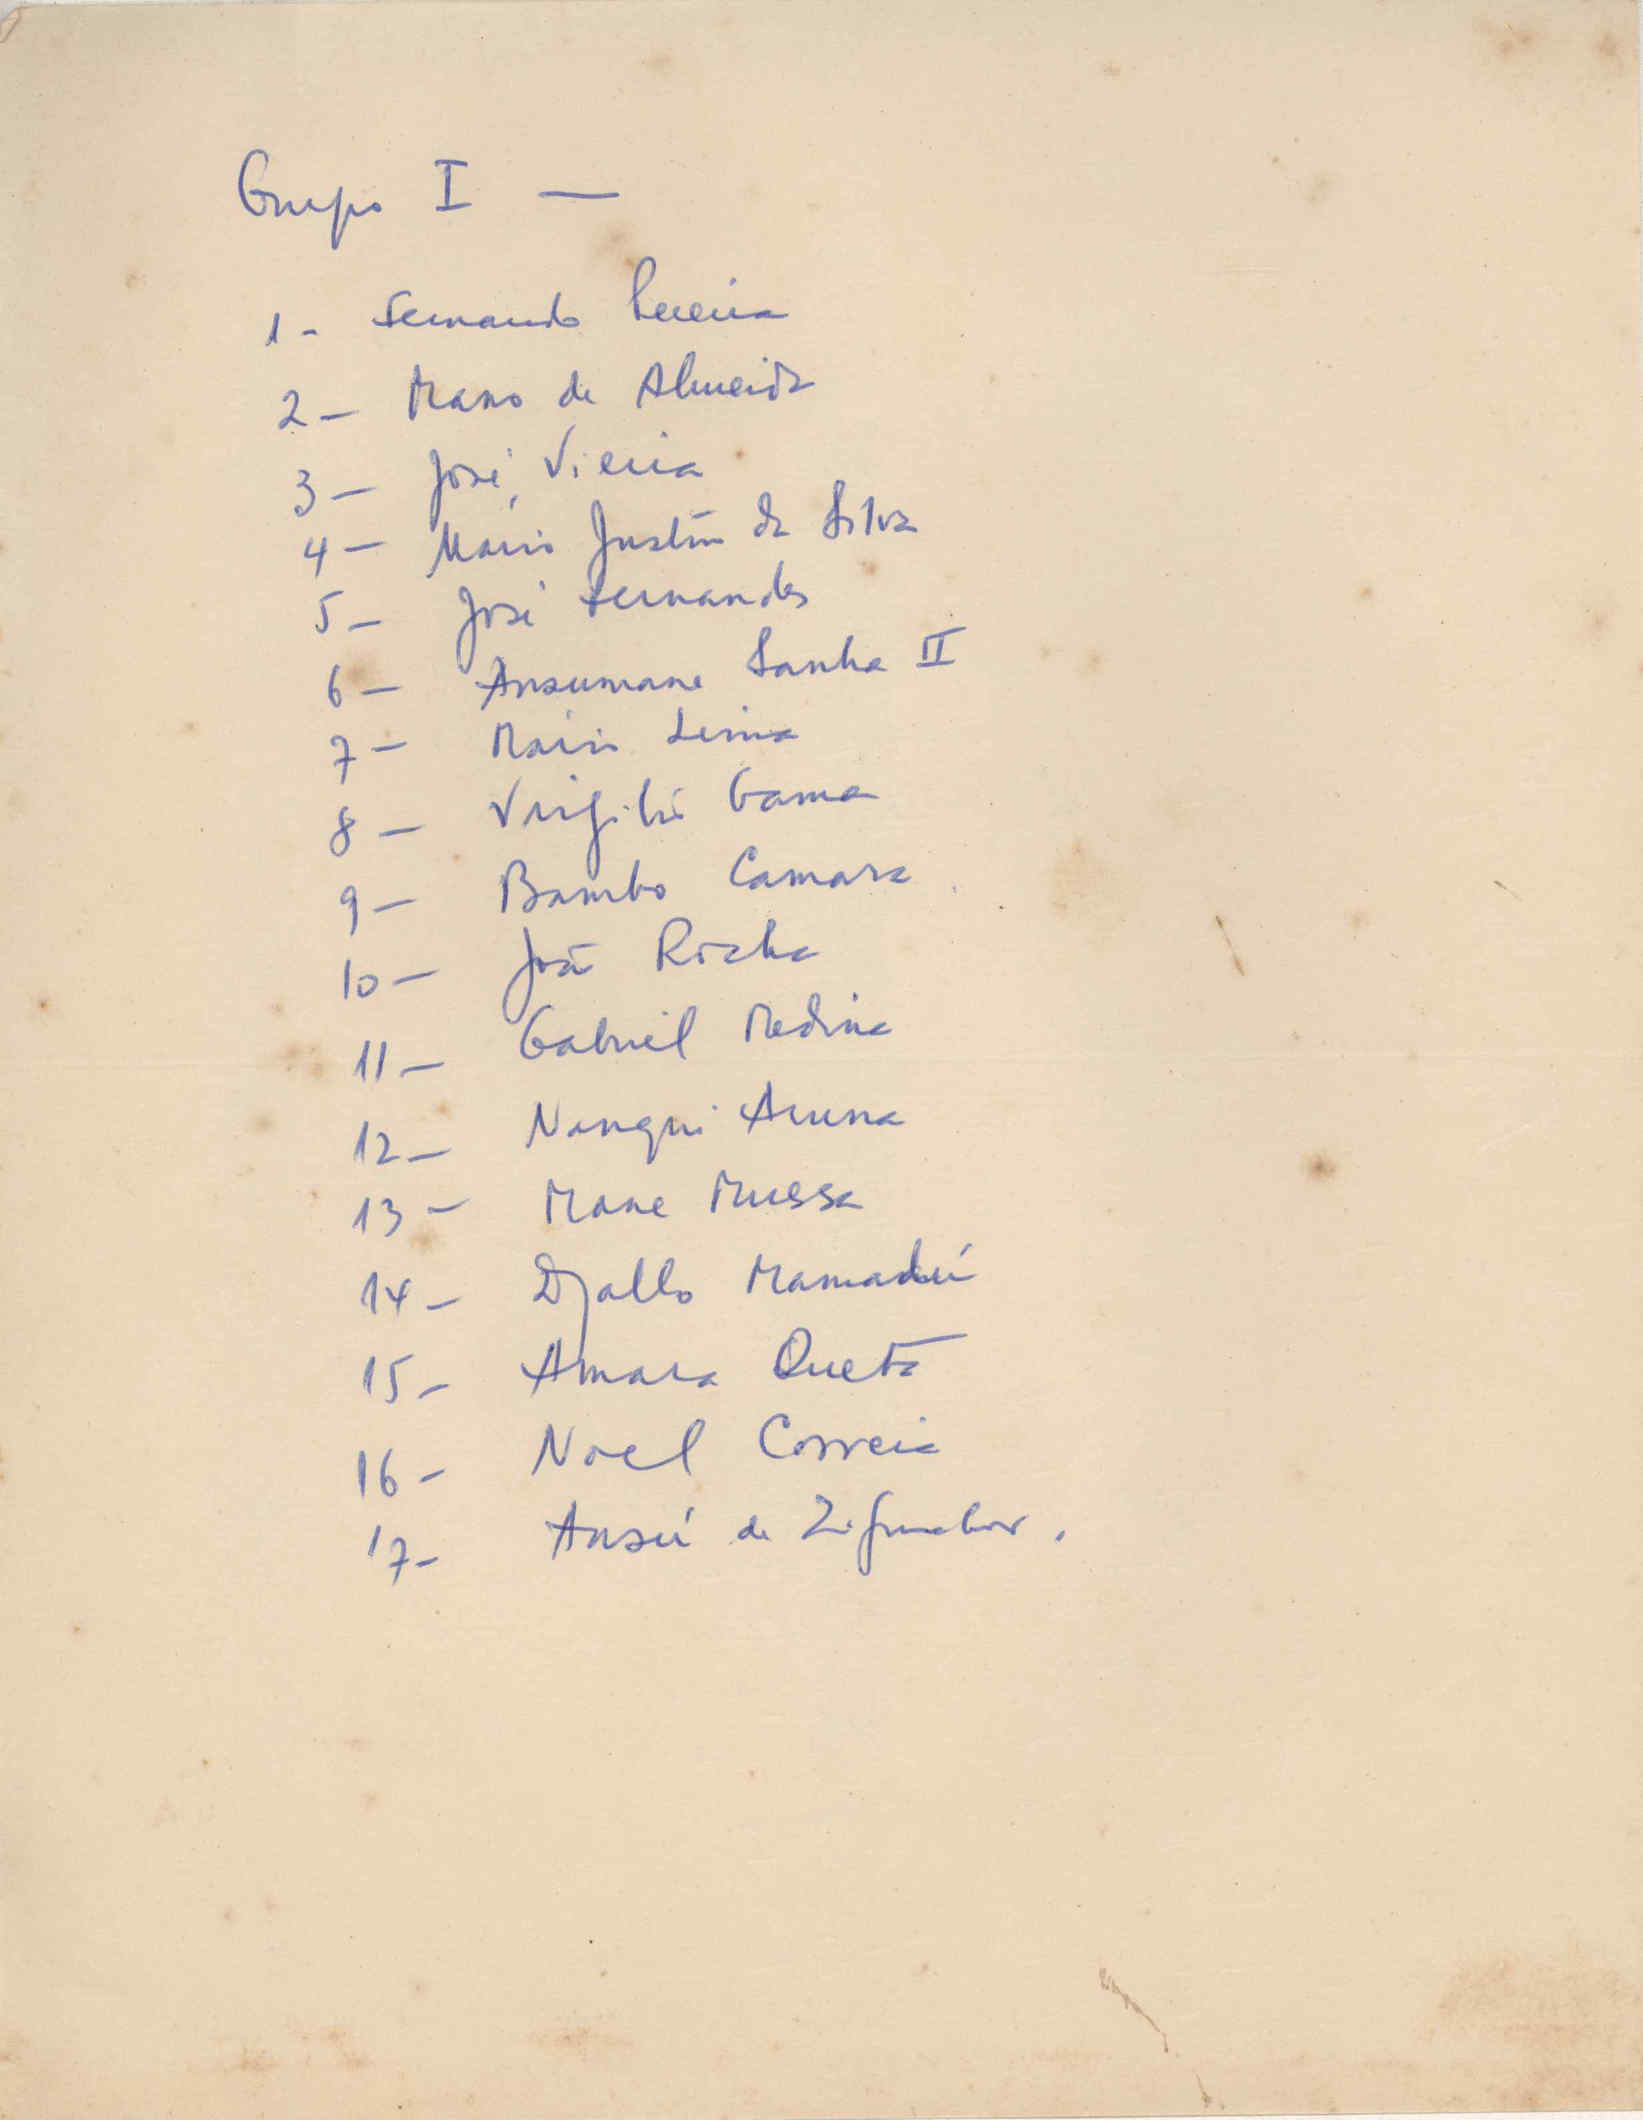 Grupo I —
1 - Fernando Pereira
2 - Mano de Almeida
3 - José Vieira
4 - Mário Justin da Silva
5 - José Fernandes
6 - Ansumane Sanha II
7 - Mário Lima
8 - Virgílio Gama
9 - Bambo Camara
10 - João Rocha
11 - Gabriel Medina
12 - Nanqui Aruna
13 - Mane Mussa
14 - Djallo Mamadú
15 - Amara Queta
16 - Noel Correia
17 - Ansú de Ziguinchor.